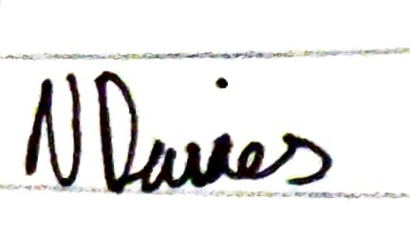 N Davies